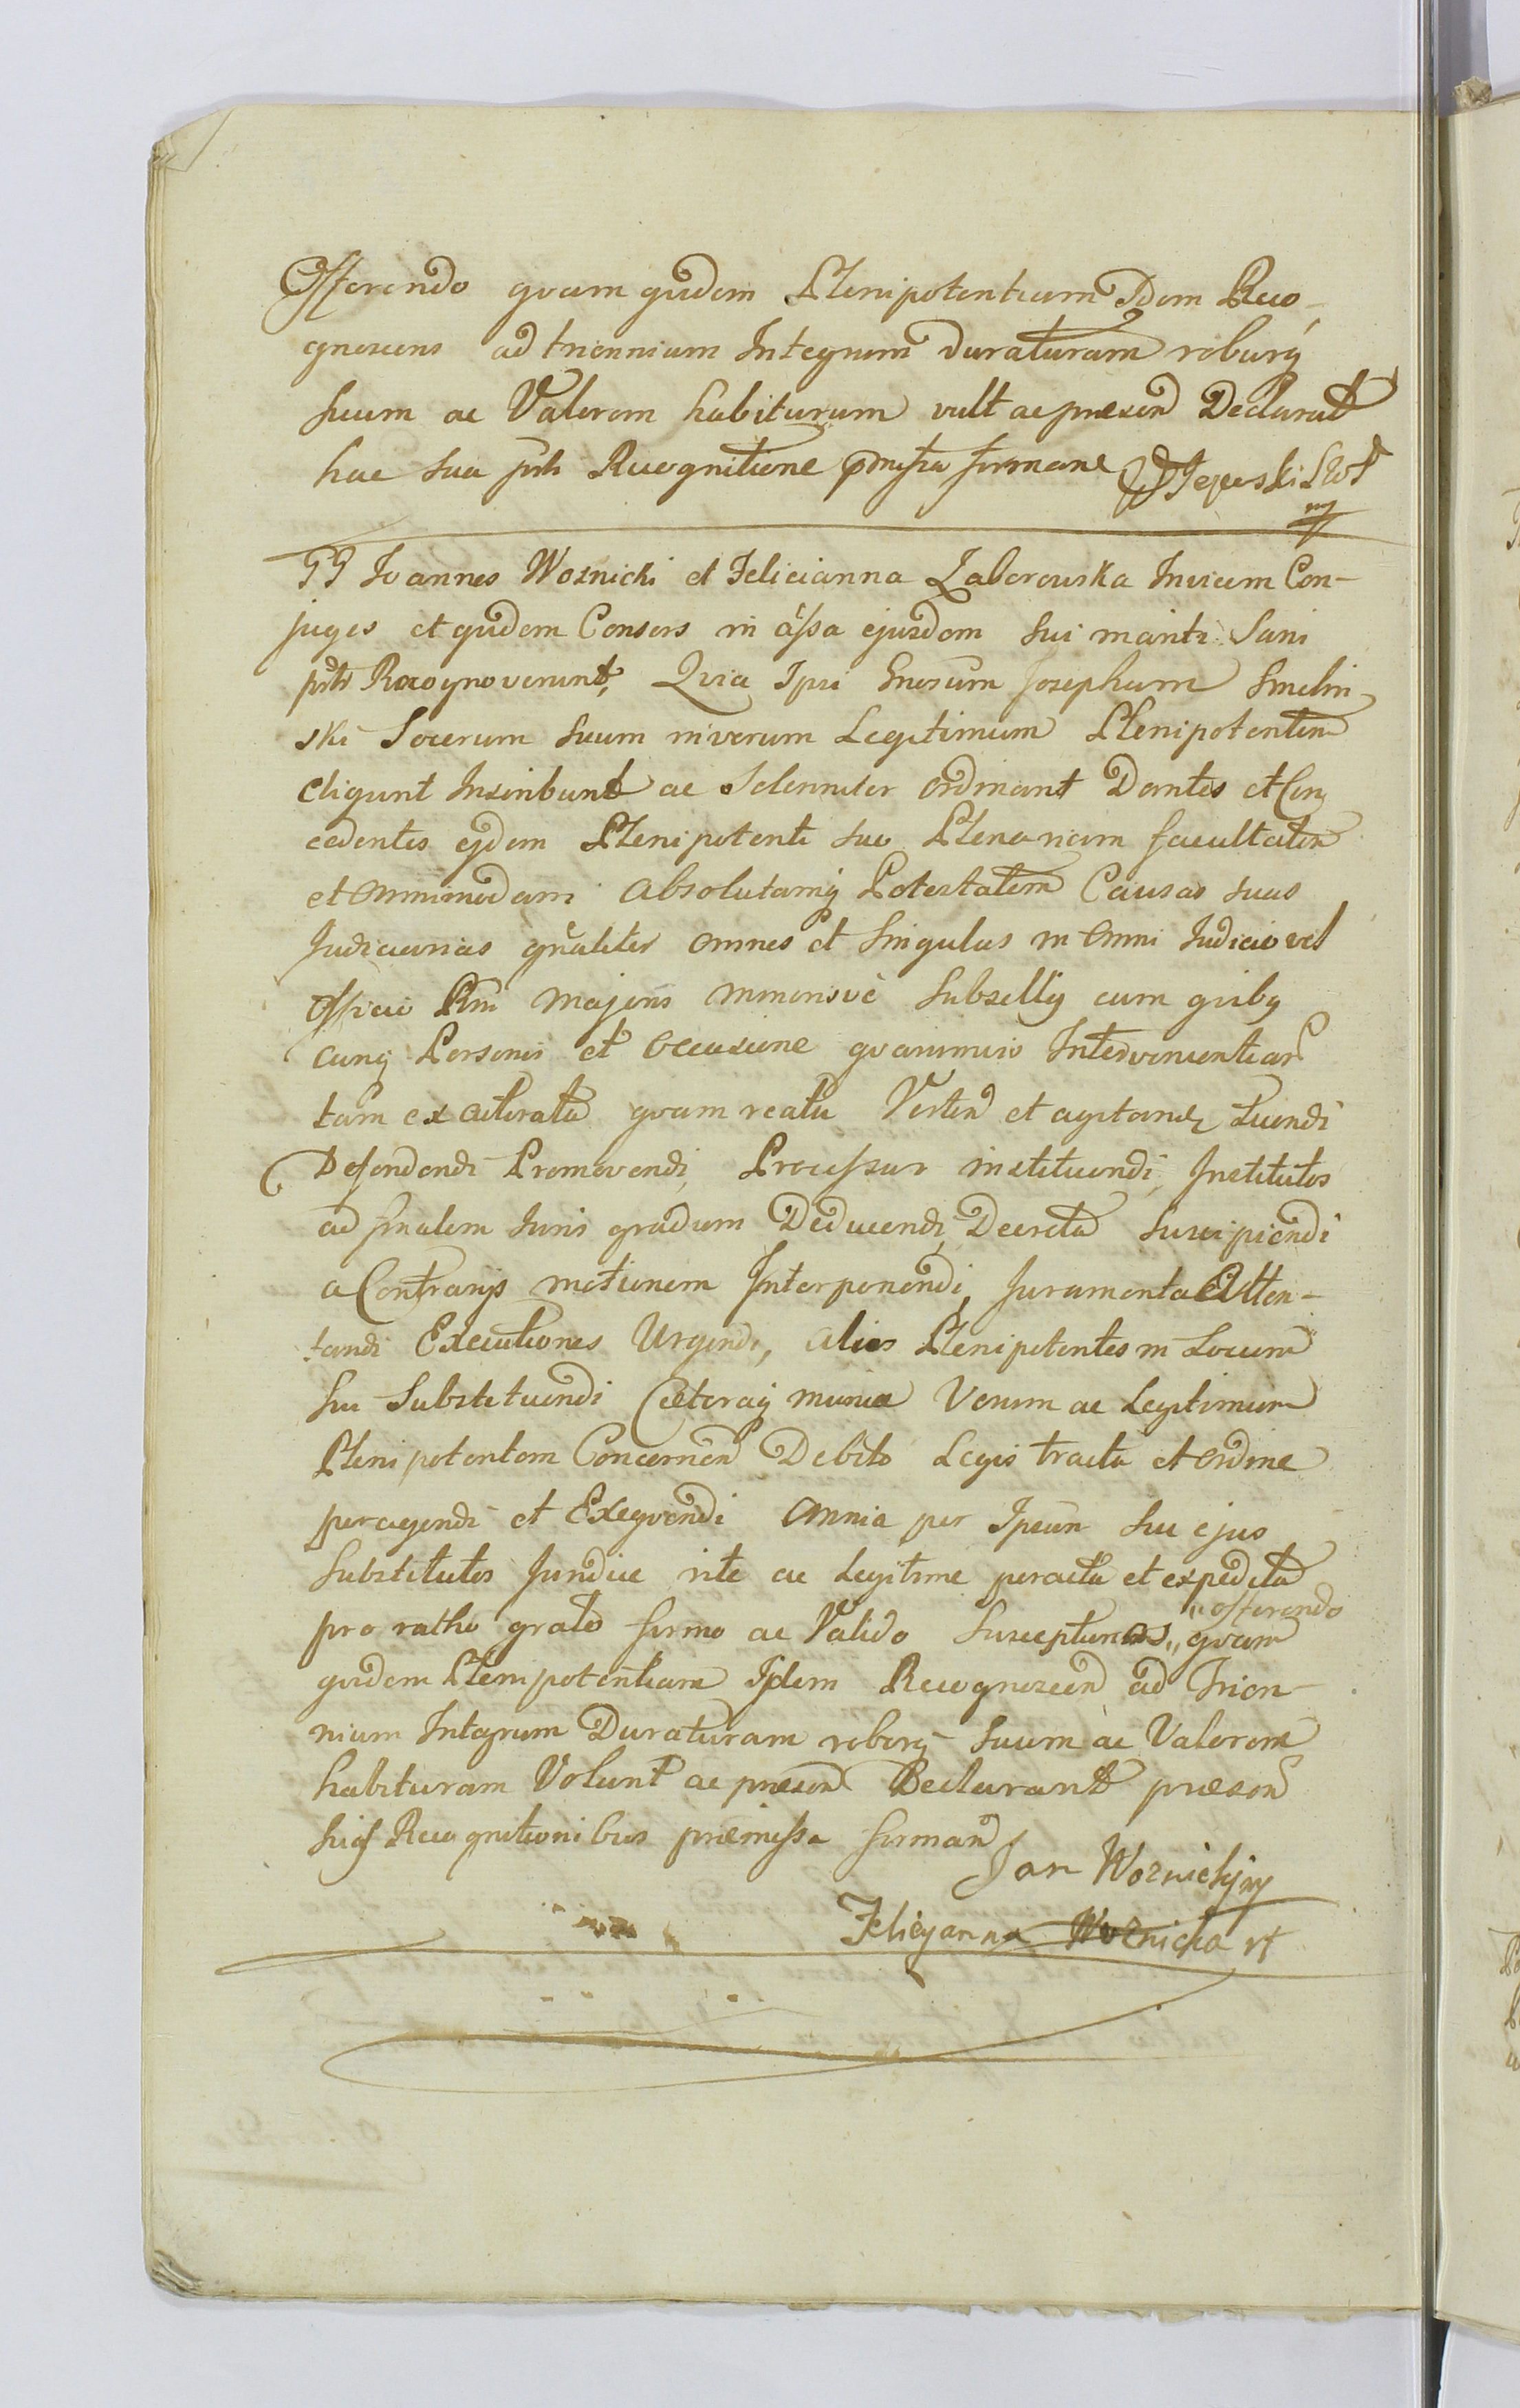 Offerendo quam quidem Plenipotentiam Idem Reco-
gnoscens ad triennium Integrum duraturam roburq
suum ac Valorem habituram vult ac præsen Declarat
hac sua prti Recognitione pmissa firmane
GG Joannes Woznicki et Felicianna Zaborowska Invicem Con-
juges et quidem Consors in assa ejusdem sui mariti Sani
prtr Recognoverunt, Quia Ipsi Gnosum Josephum Smolin
ski Socerum suum in verum Legitimum Plenipotentem
eligunt Inscribunt ac Solenniter ordinant Dantes et Con
cedentes ejdem Plenipotenti suo Plenariam facultatem
et Omnimodam Absolutamq Potestatem Causas suas
Judiciarias gnaliter omnes et Singulas in Omni Judicio vel
Officio Rni Majoris Minorisve Subsellij cum quibq
cunq Personis et occasione quarumvis Intervenientiar
tam ex actoratu quam reatu Verten et agitand tuendi
Defendendi Promovendi, Processus instituendi, Institutos
ad finalem Juris gradum Deducendi, Decreta Suscipiendi
a Contrarijs motionem Interponendi, Juramenta Atten-
tandi Executiones Urgendi, alios Plenipotentes in Locum
sui Substituendi Cæteraq munia Verum ac Legitimum
Plenipotentem Concernen Debito Legis tractu et ordine
peragendi et Exequendi Omnia per Ipsum seu ejus
Substitutos Juridice rite ac Legitime peracta et expedita
pro ratho grato firmo ac Valido Suscepturos "offerendo" quam
quidem Plenipotentiam Ijdem Recognoscen ad Trien-
nium Integrum Duraturam roborq suum ac Valorem
habituram Volunt ac præsen Declarant præsen
hisq Recognitionibus præmissa firman
Jan Woznicki mp
Felicyanna Woznicka